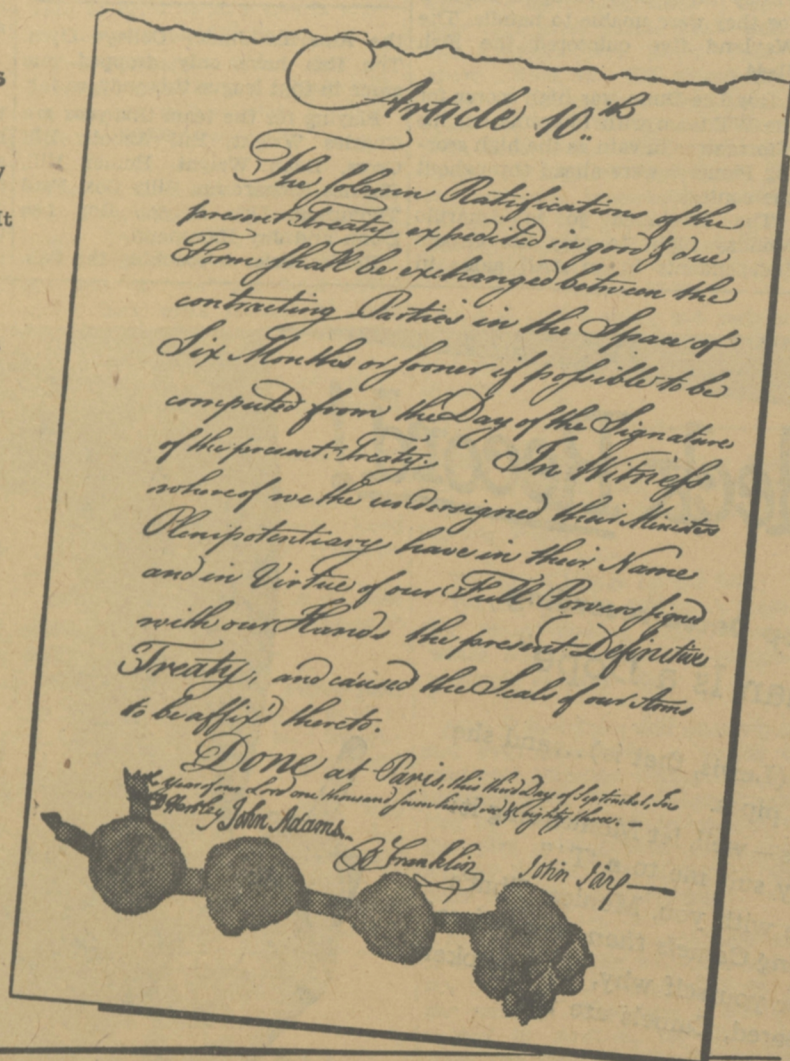 Article 10:th
The solemn Ratifications of the
present Treaty expedited in good & due
Form shall be exchanged between the
contracting Parties in the Space of
Six Months or sooner if possible to be
computed from the Day of the Signature
of the present Treaty. In Witness
whereof we the undersigned their Ministers
Plenipotentiary have in their Name
and in Virtue of our Full Powers signed
with our Hands the present Definitive
Treaty, and caused the Seals of our Arms
to be affix'd thereto.
Done at Paris, this third Day of September, In
the Year of our Lord one thousand seven hundred & eighty three.—
D Hartley John Adams.
B Franklin John Jay—